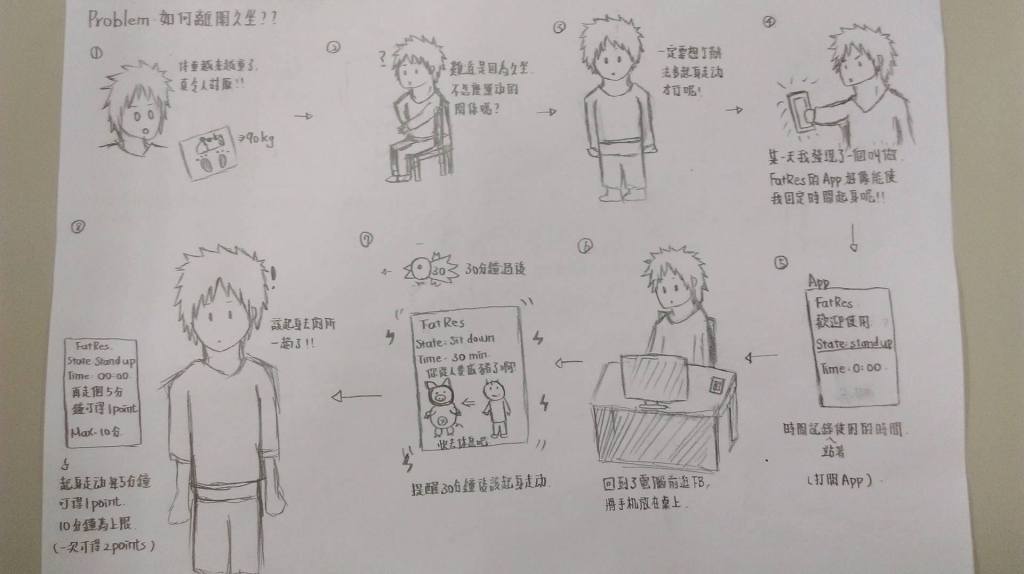 Problem - 如何離開久坐??
①
体重越來越重了,
真令人討厭!!
90kg
→90kg
②
?
難道是因為久坐
不怎麼運动的
関係嗎?
③
一定要想了辦
法多起身走动
才行呢!
④
某一天我發現了一個叫做
FatRes的App 好像能使
我固定時間起身呢!!
⑤
App
FatRes
歡迎使用
State: stand up
Time: 0:00
時間記錄使用的時間
站著
(打開App).
⑥
回到了電腦前逛FB,
將手机放在桌上.
⑦
30
30分鐘過後
FatRes
State: Sit down
Time: 30 min.
你the人要成豬了啊!
快去休息吧
提醒30分鐘後該起身走动.
⑧
!
該起身去廁所
一趟了!!
FatRes.
State: Stand up
Time: 00:00
再走個5分
鐘可得1point
Max: 10分.
起身走动每5分鐘
可得1point.
10分鐘為上限.
(一次可得2points)